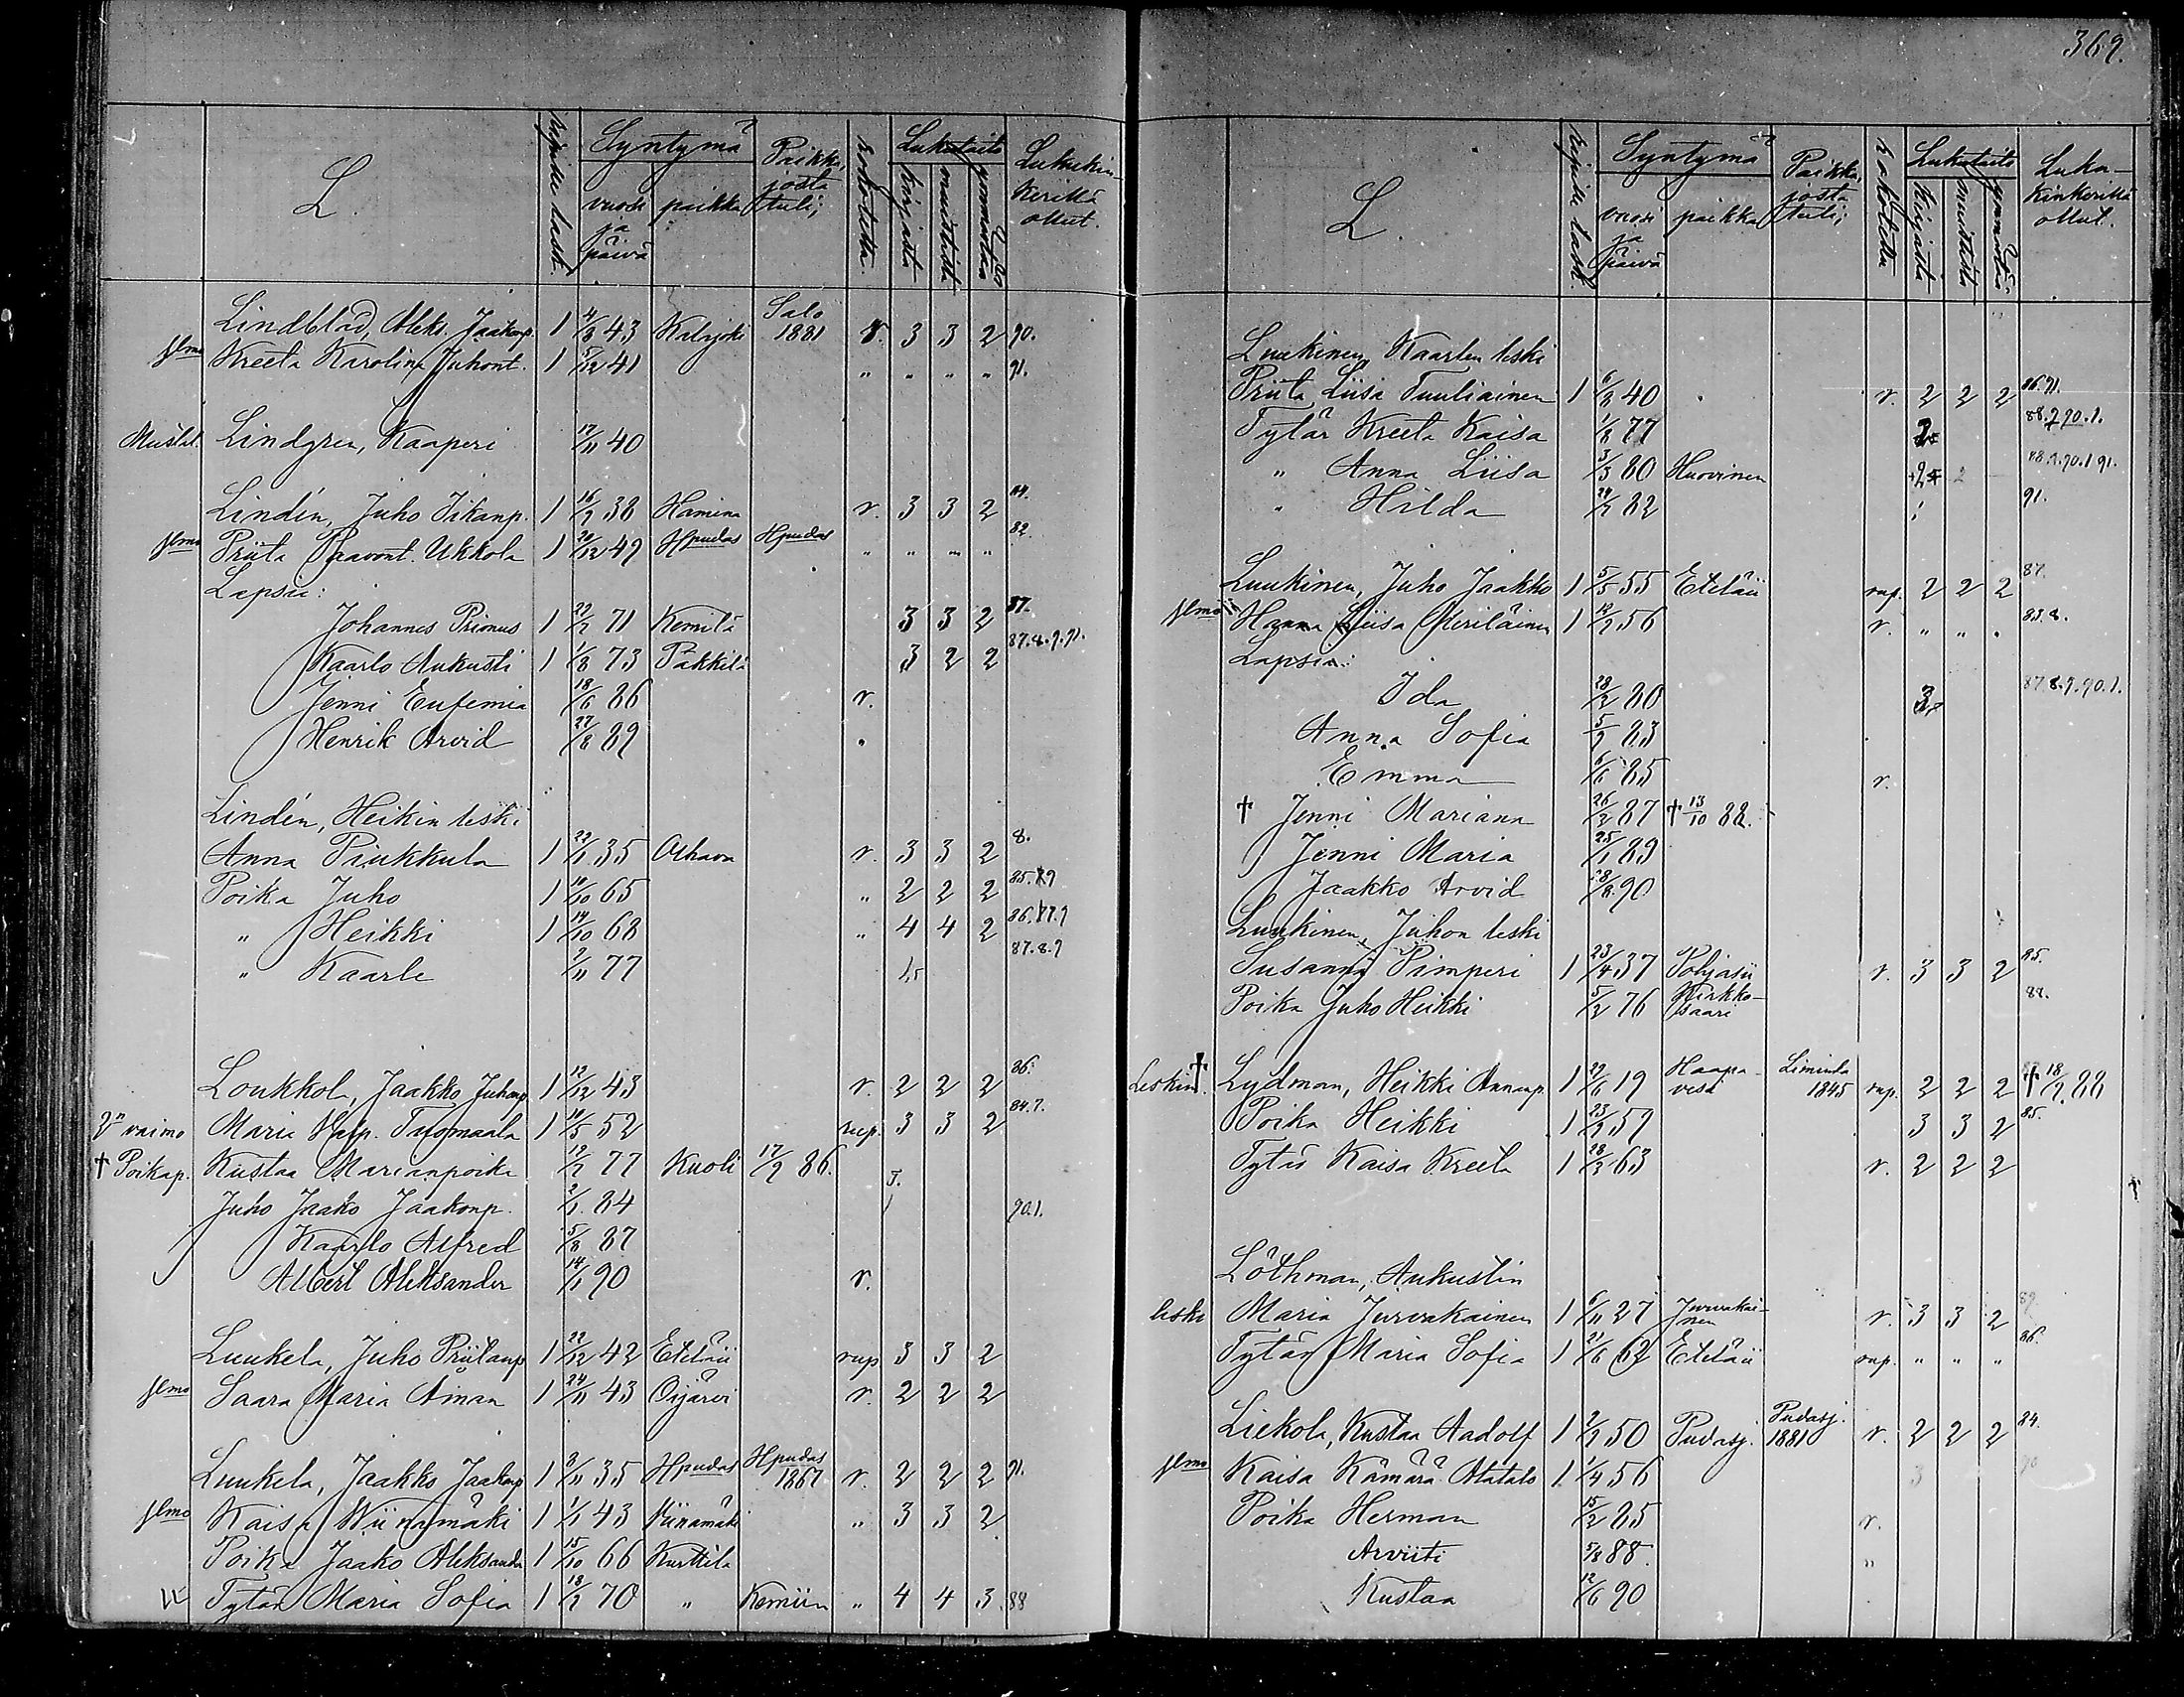 369.
L.
Syntymä
vuosi ja päivä
paikka
Paikka, josta tuli;
rokotettu
Lukutaito
kirjasta
muistista
ymmärtäv.
Lukukinkerillä ollut.
Lindblad, Aleks. Jaakonp. 1 4/8 43 Kalajoki Salo 1881 r. 3 3 2 90.
Kreeta Karolina Juhont. 1 5/12 41 " " " " 91.
Mustal. Lindgren, Kaaperi 17/11 40
Lindén, Juho Iikanp. 1 16/9 38 Hamina r. 3 3 2
Priita Paavont. Ukkola 1 20/12 49 Hpudas Hpudas " " " " 82.
Lapsia:
Johannes Primus 1 22/7 71 Kemilä 3 3 2 87.
Kaarlo Aukusti 1 1/8 73 Pakkila 3 2 2 87.8.9.91.
Jenni Eufemia 18/6 86 r.
Henrik Arvid 27/8 89
Lindén, Heikin leski
Anna Piukkula 1 22/1 35 Olhava r. 3 3 2 8.
Poika Juho 1 10/10 65 " 2 2 2
" Heikki 1 14/10 68 " 4 4 2
" Kaarle 2/11 77 87.8.9
Loukkol, Jaakko Juhonp 1 12/12 43 r. 2 2 2 86.
2n vaimo Maria Tuomaala 1 10/5 52 rup. 3 3 2 84.7.
† Poikap. Kustaa Marianpoika 12/7 77 Kuoli 17/2 86.
Juho Jaako Jaakonp. 2/1 84 90.1.
Kaarlo Alfred 5/8 87
Albert Aleksander 14/1 90 r.
Luukela, Juho Priitanp 1 22/12 42 Eteläii rup 3 3 2
Saara Maria Aman 1 24/11 43 Oijärvi r. 2 2 2
Luukela, Jaakko Jaakonp 1 3/11 35 Hpudas Hpudas 1867 r. 2 2 2 91.
Kaisa Wiinamäki 1 1/1 43 Viinamäki " 3 3 2
Poika Jaako Aleksander 1 15/10 66 Kurttila
Tytär Maria Sofia 1 18/7 70 " Kemiin " 4 4 3. 88
L.
Syntymä
vuosi ja päivä
paikka
Paikka, josta tuli;
rokotettu
Lukutaito
kirjasta
muistista
ymmärtä.
Luku-kinkerillä ollut.
Luukinen, Kaarlen leski
Priita Liisa Tuuliainen 1 6/8 40 r. 2 2 2 86.91.
Tytär Kreeta Kaisa 1/8 77
" Anna Liisa 3/3 80 Huovinen
" Hilda 82 91.
Luukinen, Juho Jaakko 1 5/5 55 Eteläii rup. 2 2 2 87.
Hanna Liisa Meriläinen 1 56 r. " " "
Lapsia:
Ida 28/2 80 87.8.9.90.1.
Anna Sofia 5/9 83
Emma 6/6 85 r.
† Jenni Mariana 26/2 87 † 13/10 88.
Jenni Maria 25/1 89
Jaakko Arvid 90
Luukinen, Juhon leski
Susanna Pimperi 1 23/4 37 Pohjasii r. 3 3 2 85.
Poika Juho Heikki 5/2 76 Kirkko-saari 88.
Leskim. † Lydman, Heikki Annanp. 1 29/6 19 Haapa-vesi Liminka 1845 rup. 2 2 2 † 18/9 88
Poika Heikki 1 23/9 57 3 3 2 85.
Tytär Kaisa Kreeta 1 28/3 63 r. 2 2 2
Löthman, Aukustin
leski Maria Jurvakainen 1 6/11 27 Jurvakai-nen r. 3 3 2 89
Tytär Maria Sofia 1 21/6 62 Eteläii rup. " " " 86.
Liekola, Kustaa Aadolf 1 2/9 50 Pudasj. Pudasj. 1881 r. 2 2 2 84.
Kaisa Kämärä Alatalo 1 1/4 56 3 90
Poika Herman 15/2 85 r.
Arviiti 5/8 88. "
Kustaa 12/6 90